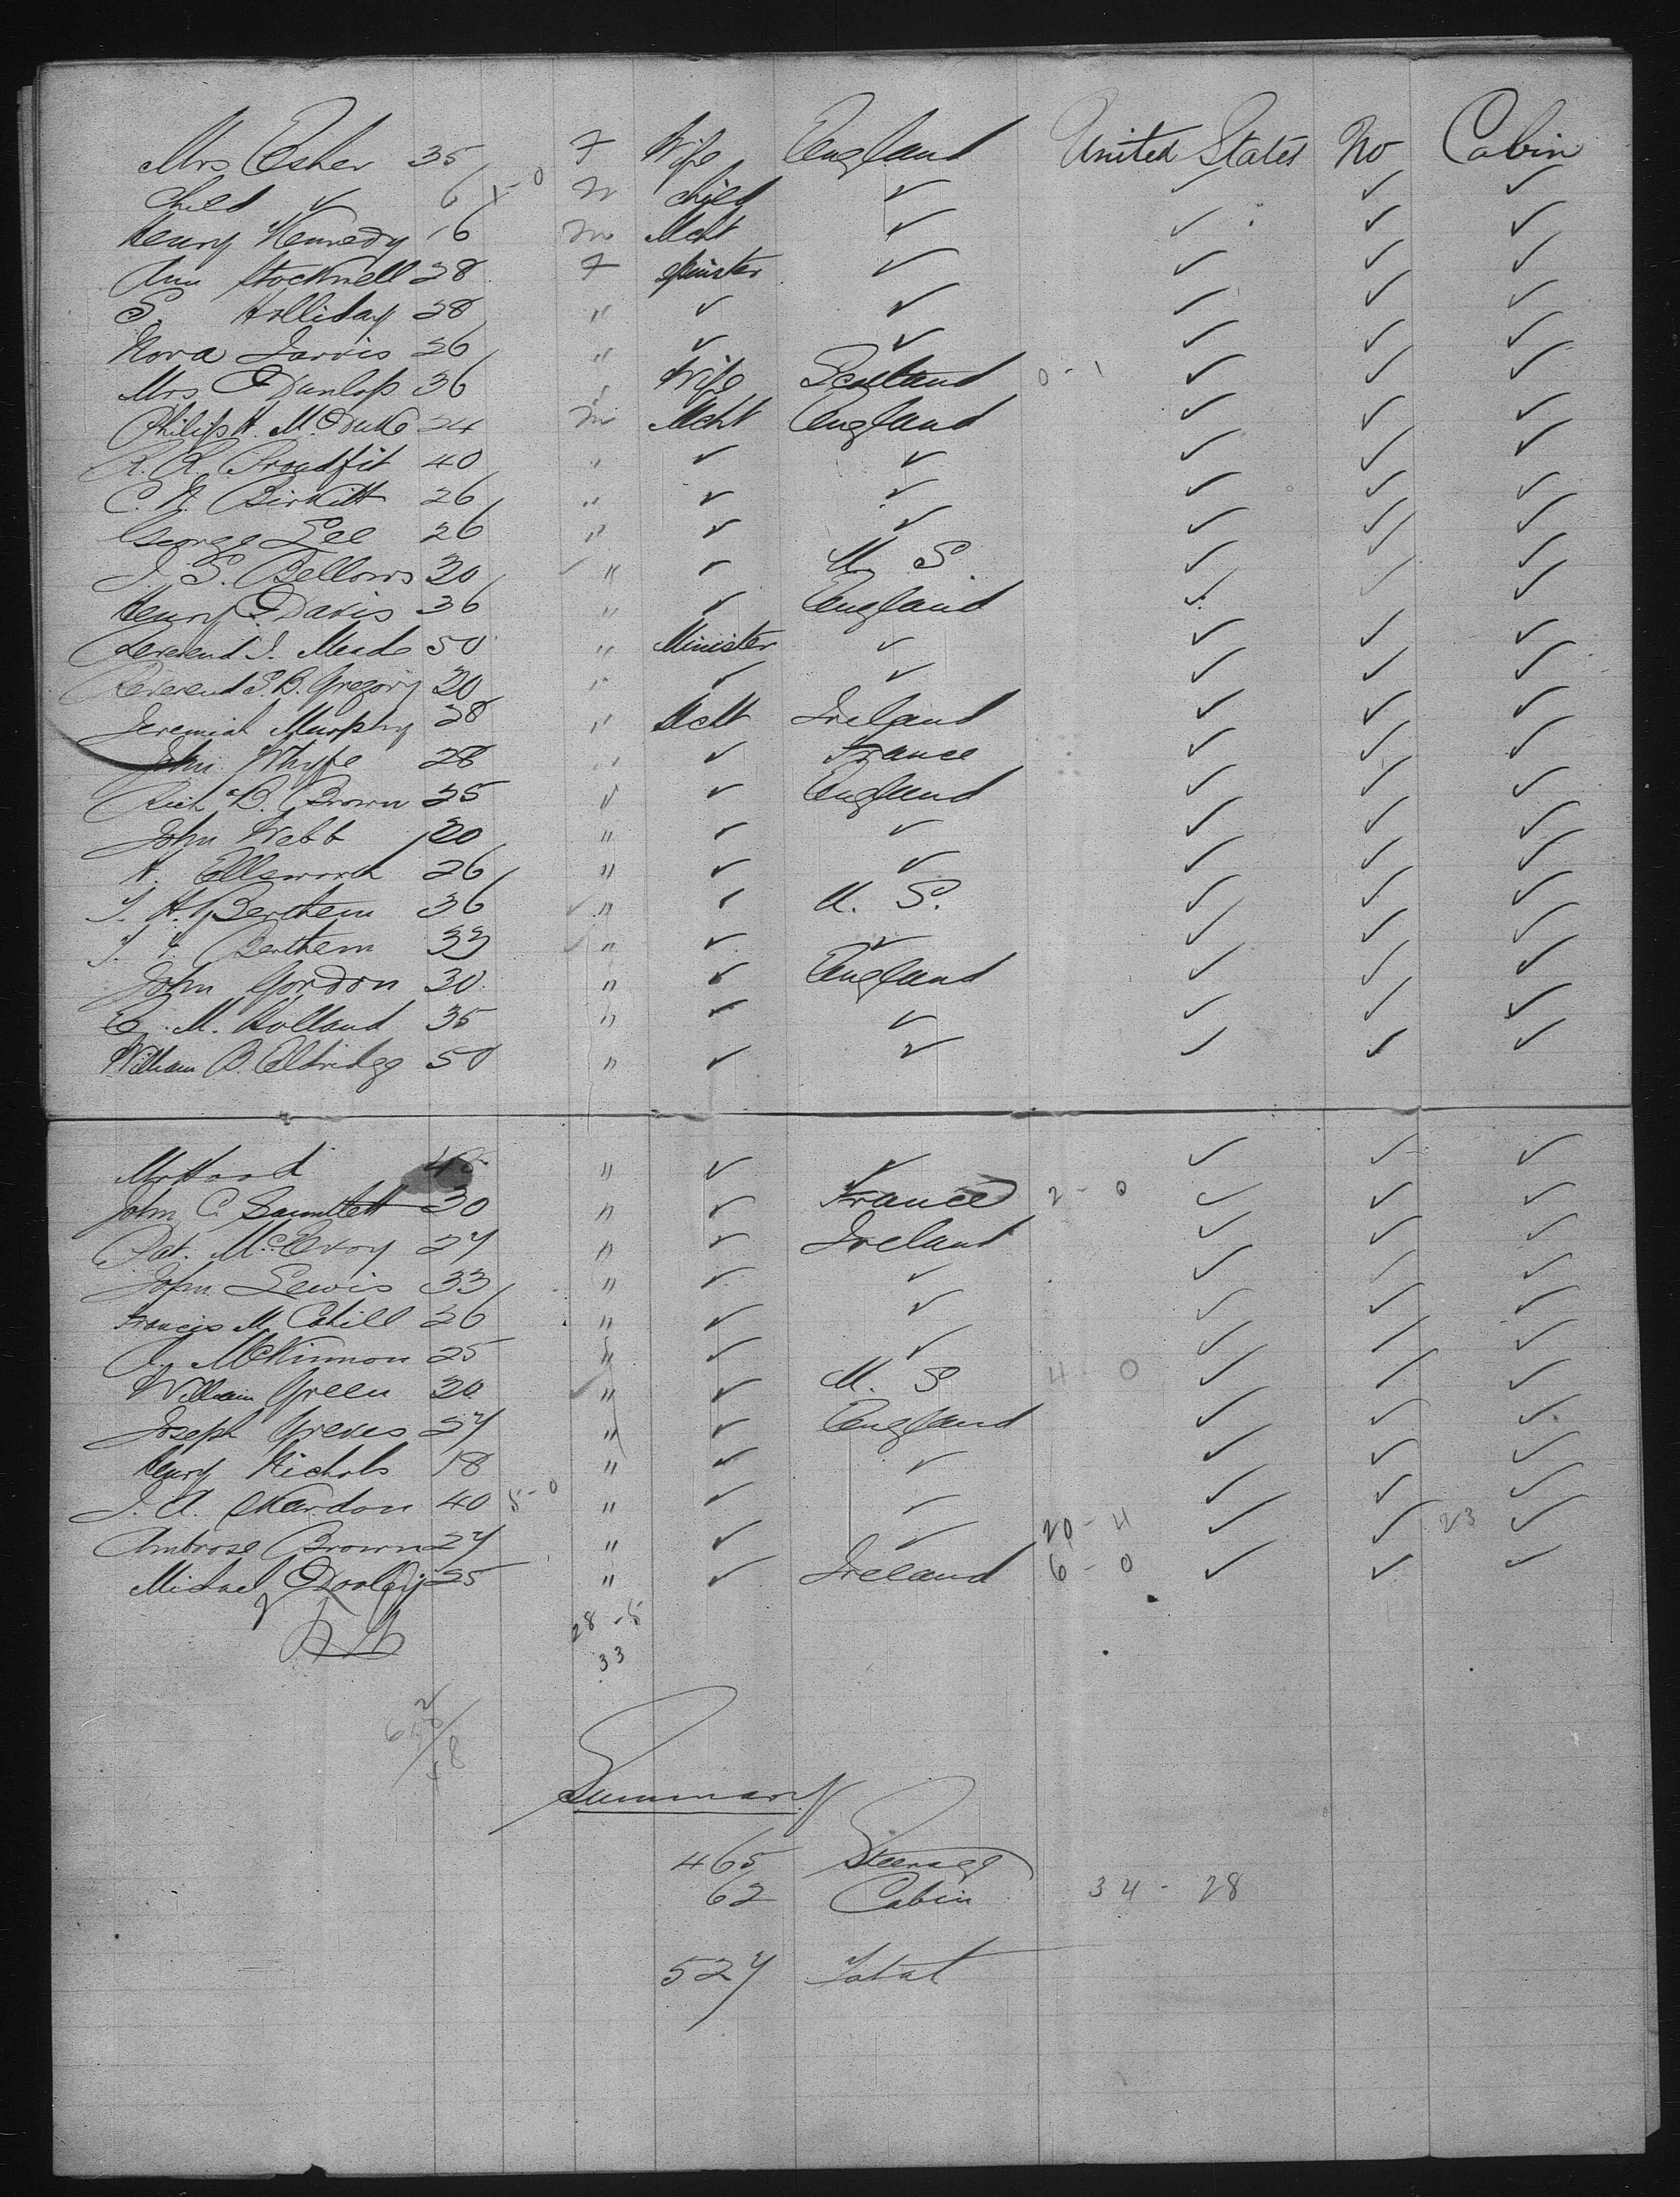 Mrs Esher 35 F Wife England United States No Cabin
Child ✓ 6 1-0 m child ✓ ✓ ✓ ✓
Henry Kennedy 16 m Mcht ✓ ✓ ✓ ✓
Ann Stocknell 28 F Spinster ✓ ✓ ✓ ✓
S. Holliday 28 " ✓ ✓ ✓ ✓ ✓
Nora Jarvis 26 " ✓ ✓ ✓ ✓ ✓
Mrs Dunlop 36 " Wife Scotland 0-1 ✓ ✓ ✓
Philip H. McDuke 24 m Mcht England ✓ ✓ ✓
R. R. Proudfit 40 " ✓ ✓ ✓ ✓ ✓
C. H. Birkitt 26 " ✓ ✓ ✓ ✓ ✓
George Lee 26 " ✓ ✓ ✓ ✓ ✓
J. S. Bellows 30 ✓ " ✓ U. S. ✓ ✓ ✓
Henry Davis 36 " ✓ England ✓ ✓ ✓
Reverend J. Meade 50 " Minister ✓ ✓ ✓ ✓
Reverend S. B. Gregory 30 " ✓ ✓ ✓ ✓ ✓
Jeremiah Murphy 28 " Mcht Ireland ✓ ✓ ✓
John Whyte 28 " ✓ France ✓ ✓ ✓
Rich d B. Brown 25 " ✓ England ✓ ✓ ✓
John Webb 20 " ✓ ✓ ✓ ✓ ✓
H. Ellsworth 26 " ✓ ✓ ✓ ✓ ✓
J. H. Berthem 36 ✓ " ✓ U. S. ✓ ✓ ✓
Berthem 33 ✓ " ✓ ✓ ✓ ✓ ✓
John Gordon 30 " ✓ England ✓ ✓ ✓
E. M. Holland 35 " ✓ ✓ ✓ ✓ ✓
William B. Eldridge 50 " ✓ ✓ ✓ ✓ ✓
Mr Hood 45 " ✓ ✓ ✓ ✓ ✓
John C. Gauntlett 30 " ✓ France 2-0 ✓ ✓ ✓
Pat. McEvoy 27 " ✓ Ireland ✓ ✓ ✓
John Lewis 33 " ✓ ✓ ✓ ✓ ✓
Francis M. Cahill 26 " ✓ ✓ ✓ ✓ ✓
McKinnon 25 " ✓ ✓ ✓ ✓ ✓
William Green 30 ✓ " ✓ U. S 4-0 ✓ ✓ ✓
Joseph Greves 27 " ✓ England ✓ ✓ ✓
Henry Nichols 18 " ✓ ✓ ✓ ✓ ✓
J. A. Skardon 40 5-0 " ✓ ✓ ✓ ✓ ✓
Ambrose Brown 27 " ✓ ✓ 20-4 ✓ ✓ 23 ✓
Michael Dooley 25 " ✓ Ireland 6-0 ✓ ✓ ✓
28-5
33
Summary
465 Steerage
62 Cabin 34-28
527 Total